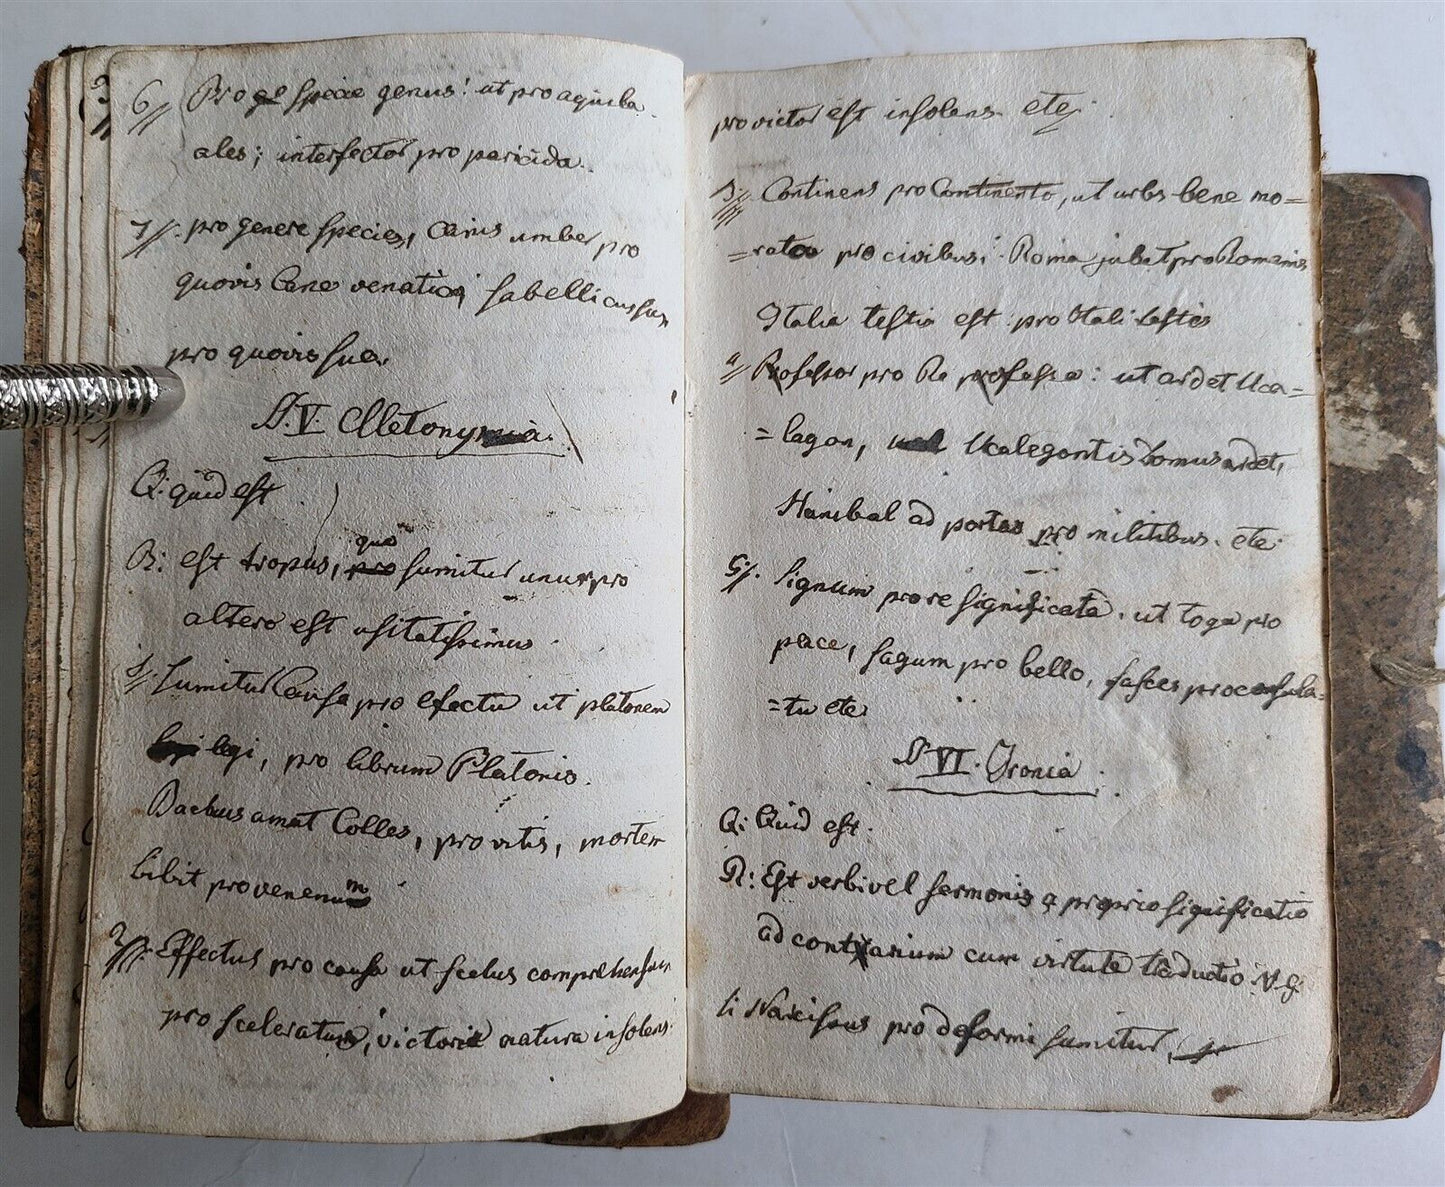 6 Pro specie genus: ut pro aquila
ales; interfector pro paricida.
7 pro genere species, Canis umber pro
quovis Cane venatico, Sabellicus sus
pro quovis sue.
S. V. Metonymia.
Q: quid est
R: est tropus, quo sumitur unum pro
altero est usitatissimus.
1 Sumitur Causa pro efectu ut platonem
legi, pro librum Platonis.
Bachus amat Colles, pro vitis, mortem
bibit pro venenum
2 Effectus pro causa ut scelus comprehensum
pro sceleratum, victoria natura insolens
pro victor est insolens etc
3 Continens pro Contento, ut urbs bene mo=
=rata pro civibus; Roma jubet pro Romanis
Italia testis est pro Itali testis
4 Professor pro Re professa: ut ardet Uca=
=lagon, Ucalegontis Domus ardet,
Hanibal ad portas pro militibus. etc
5 Signum pro re significata, ut toga pro
pace, sagum pro bello, fasces pro consula=
=tu etc
S VI. Ironia
Q: Quid est.
R: Est verbi vel sermonis a proprio significatio
ad contrarium cum virtute traductio V. G.
si Narcissus pro deformi sumitur,